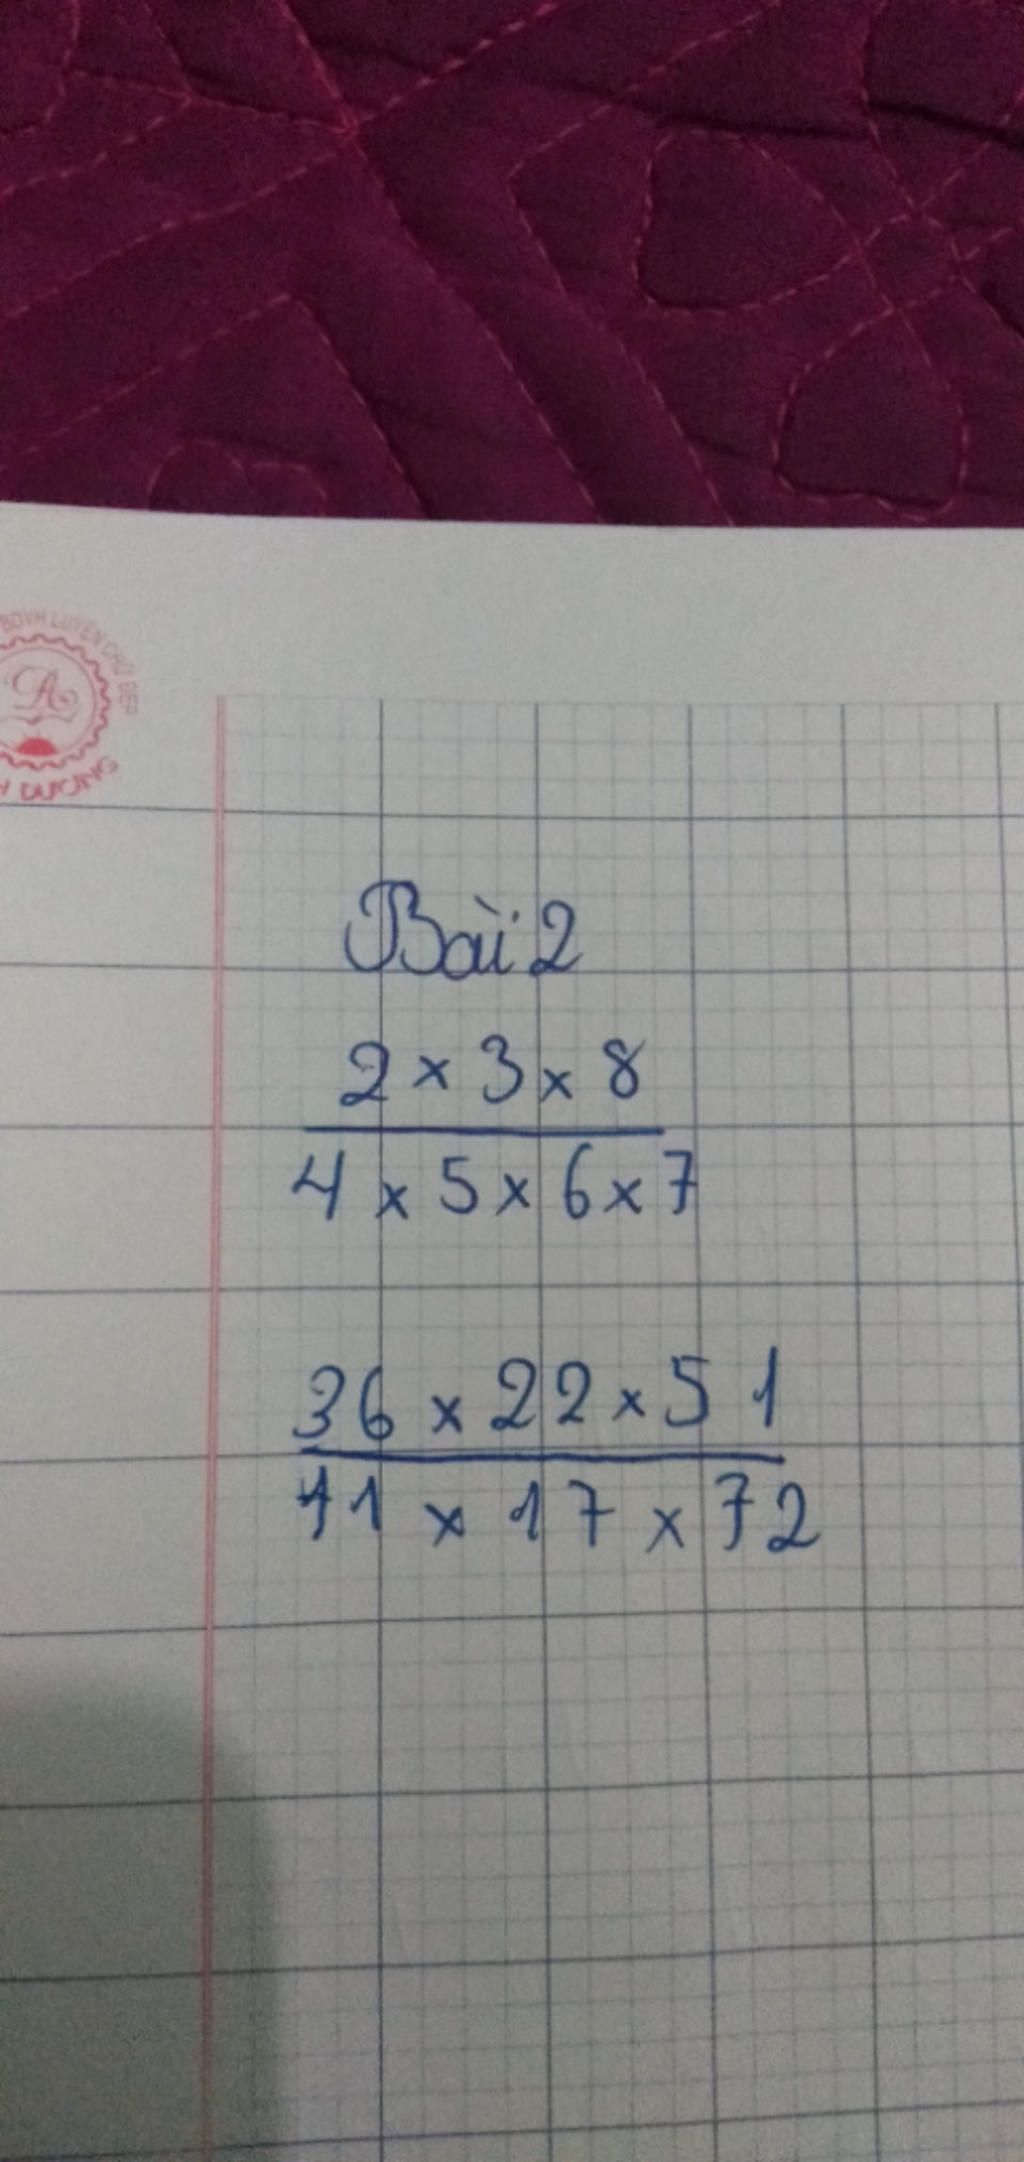 BDVH LUYỆN CHỮ ĐẸP
A
DƯƠNG
Bài 2
2 × 3 × 8
4 × 5 × 6 × 7
36 × 22 × 51
11 × 17 × 72